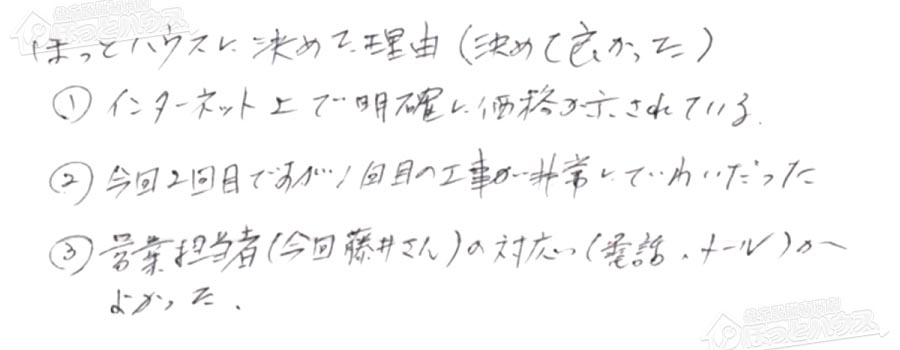 ほっとハウスに決めて理由(決めて良かった)
① インターネット上で明確に価格が示されている.
② 今回2回目ですが、1回目の工事が非常にていねいだった
③ 営業担当者(今回藤井さん)の対応(電話、メール)が
よかった.
ほっとハウス
ほっとハウス